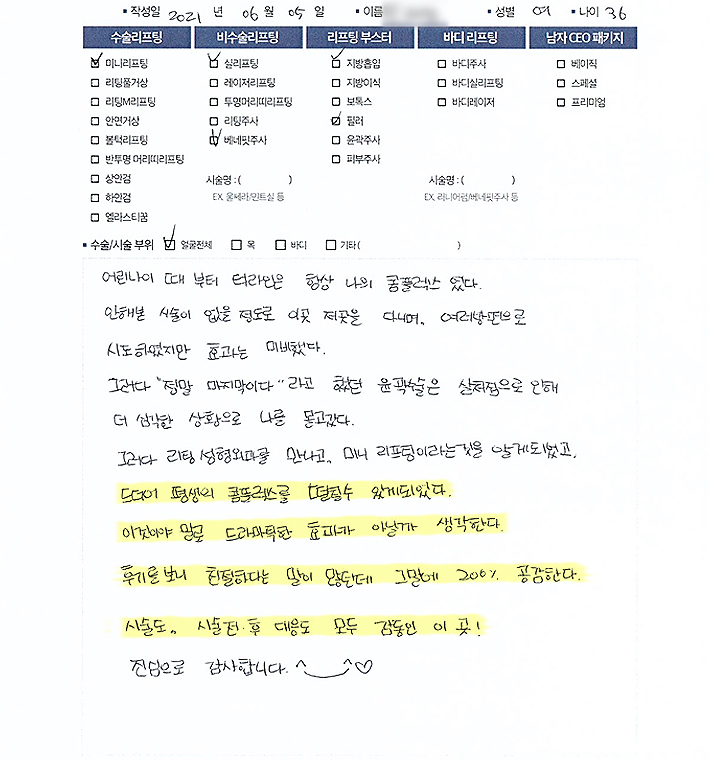 ▪ 작성일 2021 년 06 월 05 일 ▪ 이름 ▪ 성별 여 ▪ 나이 36
수술리프팅 비수술리프팅 리프팅 부스터 바디 리프팅 남자 CEO 패키지
미니리프팅 실리프팅 지방흡입 바디주사 베이직
리팅풀거상 레이저리프팅 지방이식 바디실리프팅 스페셜
리팅M리프팅 투명머리띠리프팅 보톡스 바디레이저 프리미엄
안면거상 리팅주사 필러
볼턱리프팅 베네핏주사 윤곽주사
반투명 머리띠리프팅 피부주사
상안검 시술명 : ( ) 시술명 : ( )
하안검 EX. 울쎄라/민트실 등 EX. 리니어펌/베네핏주사 등
엘라스티꿈
▪ 수술/시술 부위 얼굴전체 목 바디 기타 ( )
어린나이 때 부터 턱라인은 항상 나의 콤플렉스 였다.
안해본 시술이 없을 정도로 이곳 저곳을 다니며, 여러방면으로
시도하였지만 효과는 미비했다.
그러다 "정말 마지막이다" 라고 했던 윤곽수술은 살처짐으로 인해
더 심각한 상황으로 나를 몰고갔다.
그러다 리팅성형외과를 만나고, 미니 리프팅이라는것을 알게되었고,
드디어 평생의 콤플렉스를 떨칠수 있게되었다.
이것이야 말로 드라마틱한 효과가 아닐까 생각한다.
후기를보니 친절하다는 말이 많던데 그말에 200% 공감한다.
시술도, 시술전·후 대응도 모두 감동인 이 곳!
진심으로 감사합니다. ^‿^♡